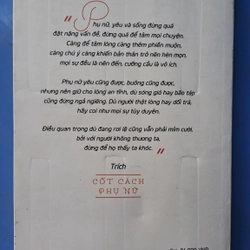 Phụ nữ, yêu và sống đừng quá
đặt nặng vấn đề, đừng quá để tâm mọi chuyện.
Càng để tâm lòng càng thêm phiền muộn,
càng chú ý càng khiến bản thân trở nên hèn mọn,
mọi sự đều là nên đến, cưỡng cầu là vô ích.
Phụ nữ yêu cũng được, buông cũng được,
nhưng nên giữ cho lòng an tĩnh, dù sóng gió hay bão táp
cũng đừng ngả nghiêng. Dù người thật lòng hay dối trá,
hãy coi như mọi sự tùy duyên.
Điều quan trọng dù đang rơi lệ cũng vẫn phải mỉm cười,
bởi với người không thương ta,
đừng để họ thấy ta khóc.
Trích
CỐT CÁCH
PHỤ NỮ